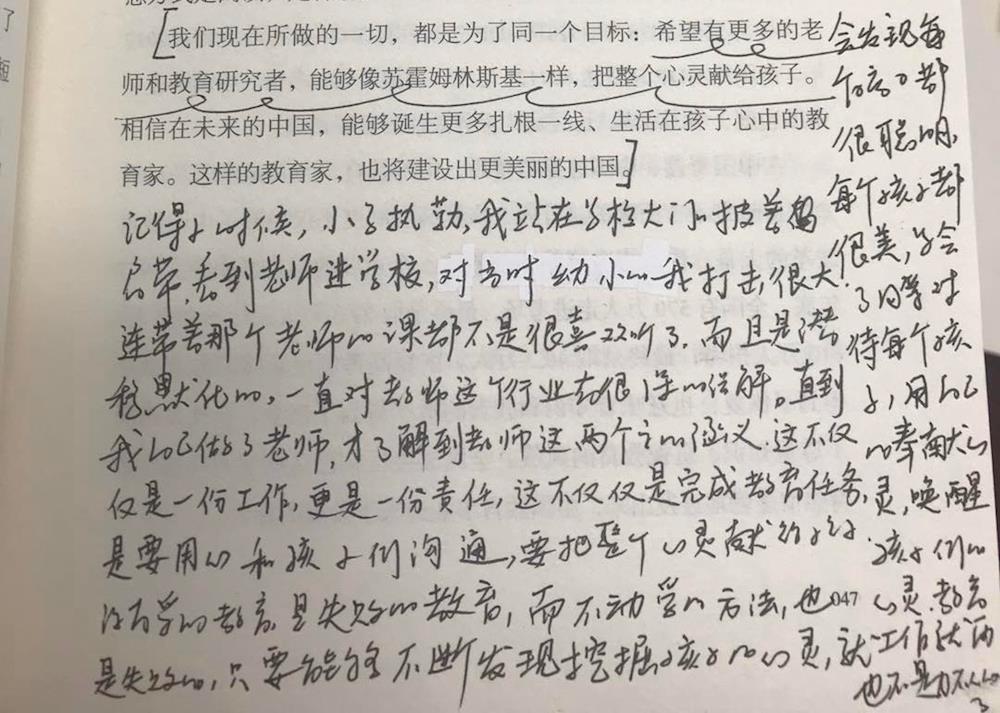 我们现在所做的一切，都是为了同一个目标：希望有更多的老
师和教育研究者，能够像苏霍姆林斯基一样，把整个心灵献给孩子。
相信在未来的中国，能够诞生更多扎根一线、生活在孩子心中的教
育家。这样的教育家，也将建设出更美丽的中国。
记得小时候，小子执勤，我站在学校大门口披着
肩带，看到老师进学校，对当时幼小的我打击很大
连带着那个老师的课都不是很喜欢听了，而且是潜
移默化的，一直对教师这个行业有很深的误解。直到
我自己做了老师，才了解到老师这两个字的涵义，这不仅
仅是一份工作，更是一份责任，这不仅仅是完成教育任务，
是要用心和孩子们沟通，要把整个心灵献给孩子，
没有爱的教育是失败的教育，而不动爱的方法，也
是失败的，只要能够不断发现挖掘孩子的心灵，就
047
会发现每
个孩子都
很聪明，
每个孩子都
很美，学会
了同等对
待每个孩
子，用自己
的奉献心
灵，唤醒
孩子们的
心灵，教育
工作就
也不是